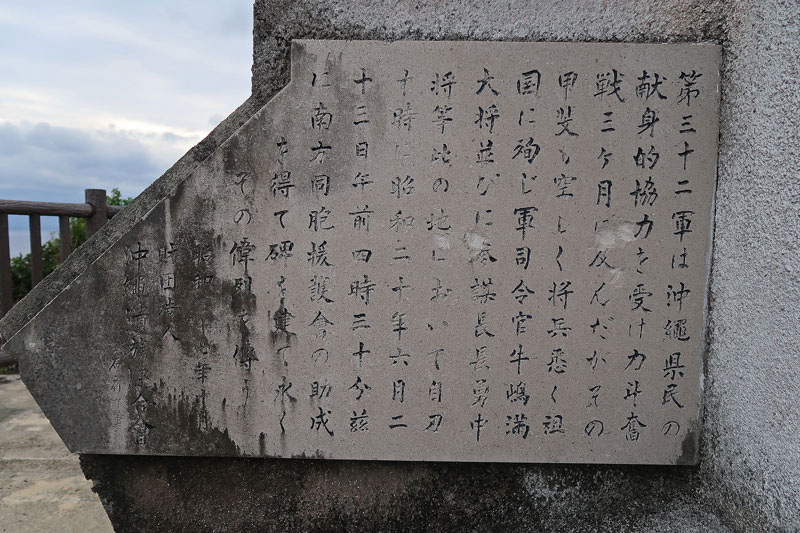 第三十二軍は沖繩県民の
献身的協力を受け力斗奮
戦三ケ月に及んだがその
甲斐も空しく将兵悉く祖
国に殉じ軍司令官牛嶋満
大将並びに参謀長長勇中
将等此の地において自刃
す時に昭和二十年六月二
十三日午前四時三十分茲
に南方同胞援護會の助成
を得て碑を建て永く
その偉烈を傳う
昭和 十七年十月
財団法人
沖繩遺族連合會